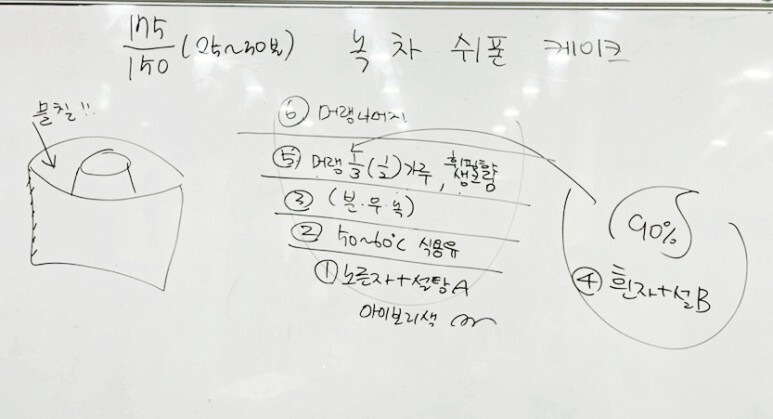 175/150 (25~30분) 녹차 쉬폰 케이크
물칠!!
⑥ 머랭나머지
⑤ 머랭 1/3 (1/2) 가루, 휘핑량
생크림
③ (분·우·녹)
② 50~60℃ 식용유
① 노른자+설탕A
아이보리색
90%
④ 흰자+설B